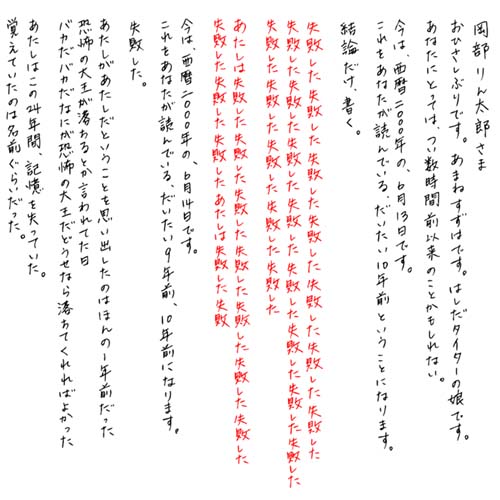 岡部 りん太郎さま
おひさしぶりです。あまねすずはです。はしだタイターの娘です。
あなたにとっては、つい数時間前以来のことかもしれない。
今は、西暦二000年の、6月13日です。
これをあなたが読んでいる、だいたい10年前ということになります。
結論だけ、書く。
失敗した失敗した失敗した失敗した失敗した失敗した失敗した失敗した
失敗した失敗した失敗した失敗した失敗した失敗した失敗した失敗した
失敗した失敗した失敗した失敗した失敗した
あたしは失敗した失敗した失敗した失敗した失敗した失敗した失敗した
失敗した失敗した失敗したあたしは失敗した失敗
今は、西暦二000年の、6月14日です。
これをあなたが読んでいる、だいたい9年前、10年前になります。
失敗した。
あたしがあたしだということを思い出したのはほんの1年前だった
恐怖の大王が落ちるとか言われてた日
バカだバカだなにが恐怖の大王だどうせなら落ちてくれればよかった
あたしはこの24年間、記憶を失っていた。
覚えていたのは名前ぐらいだった。